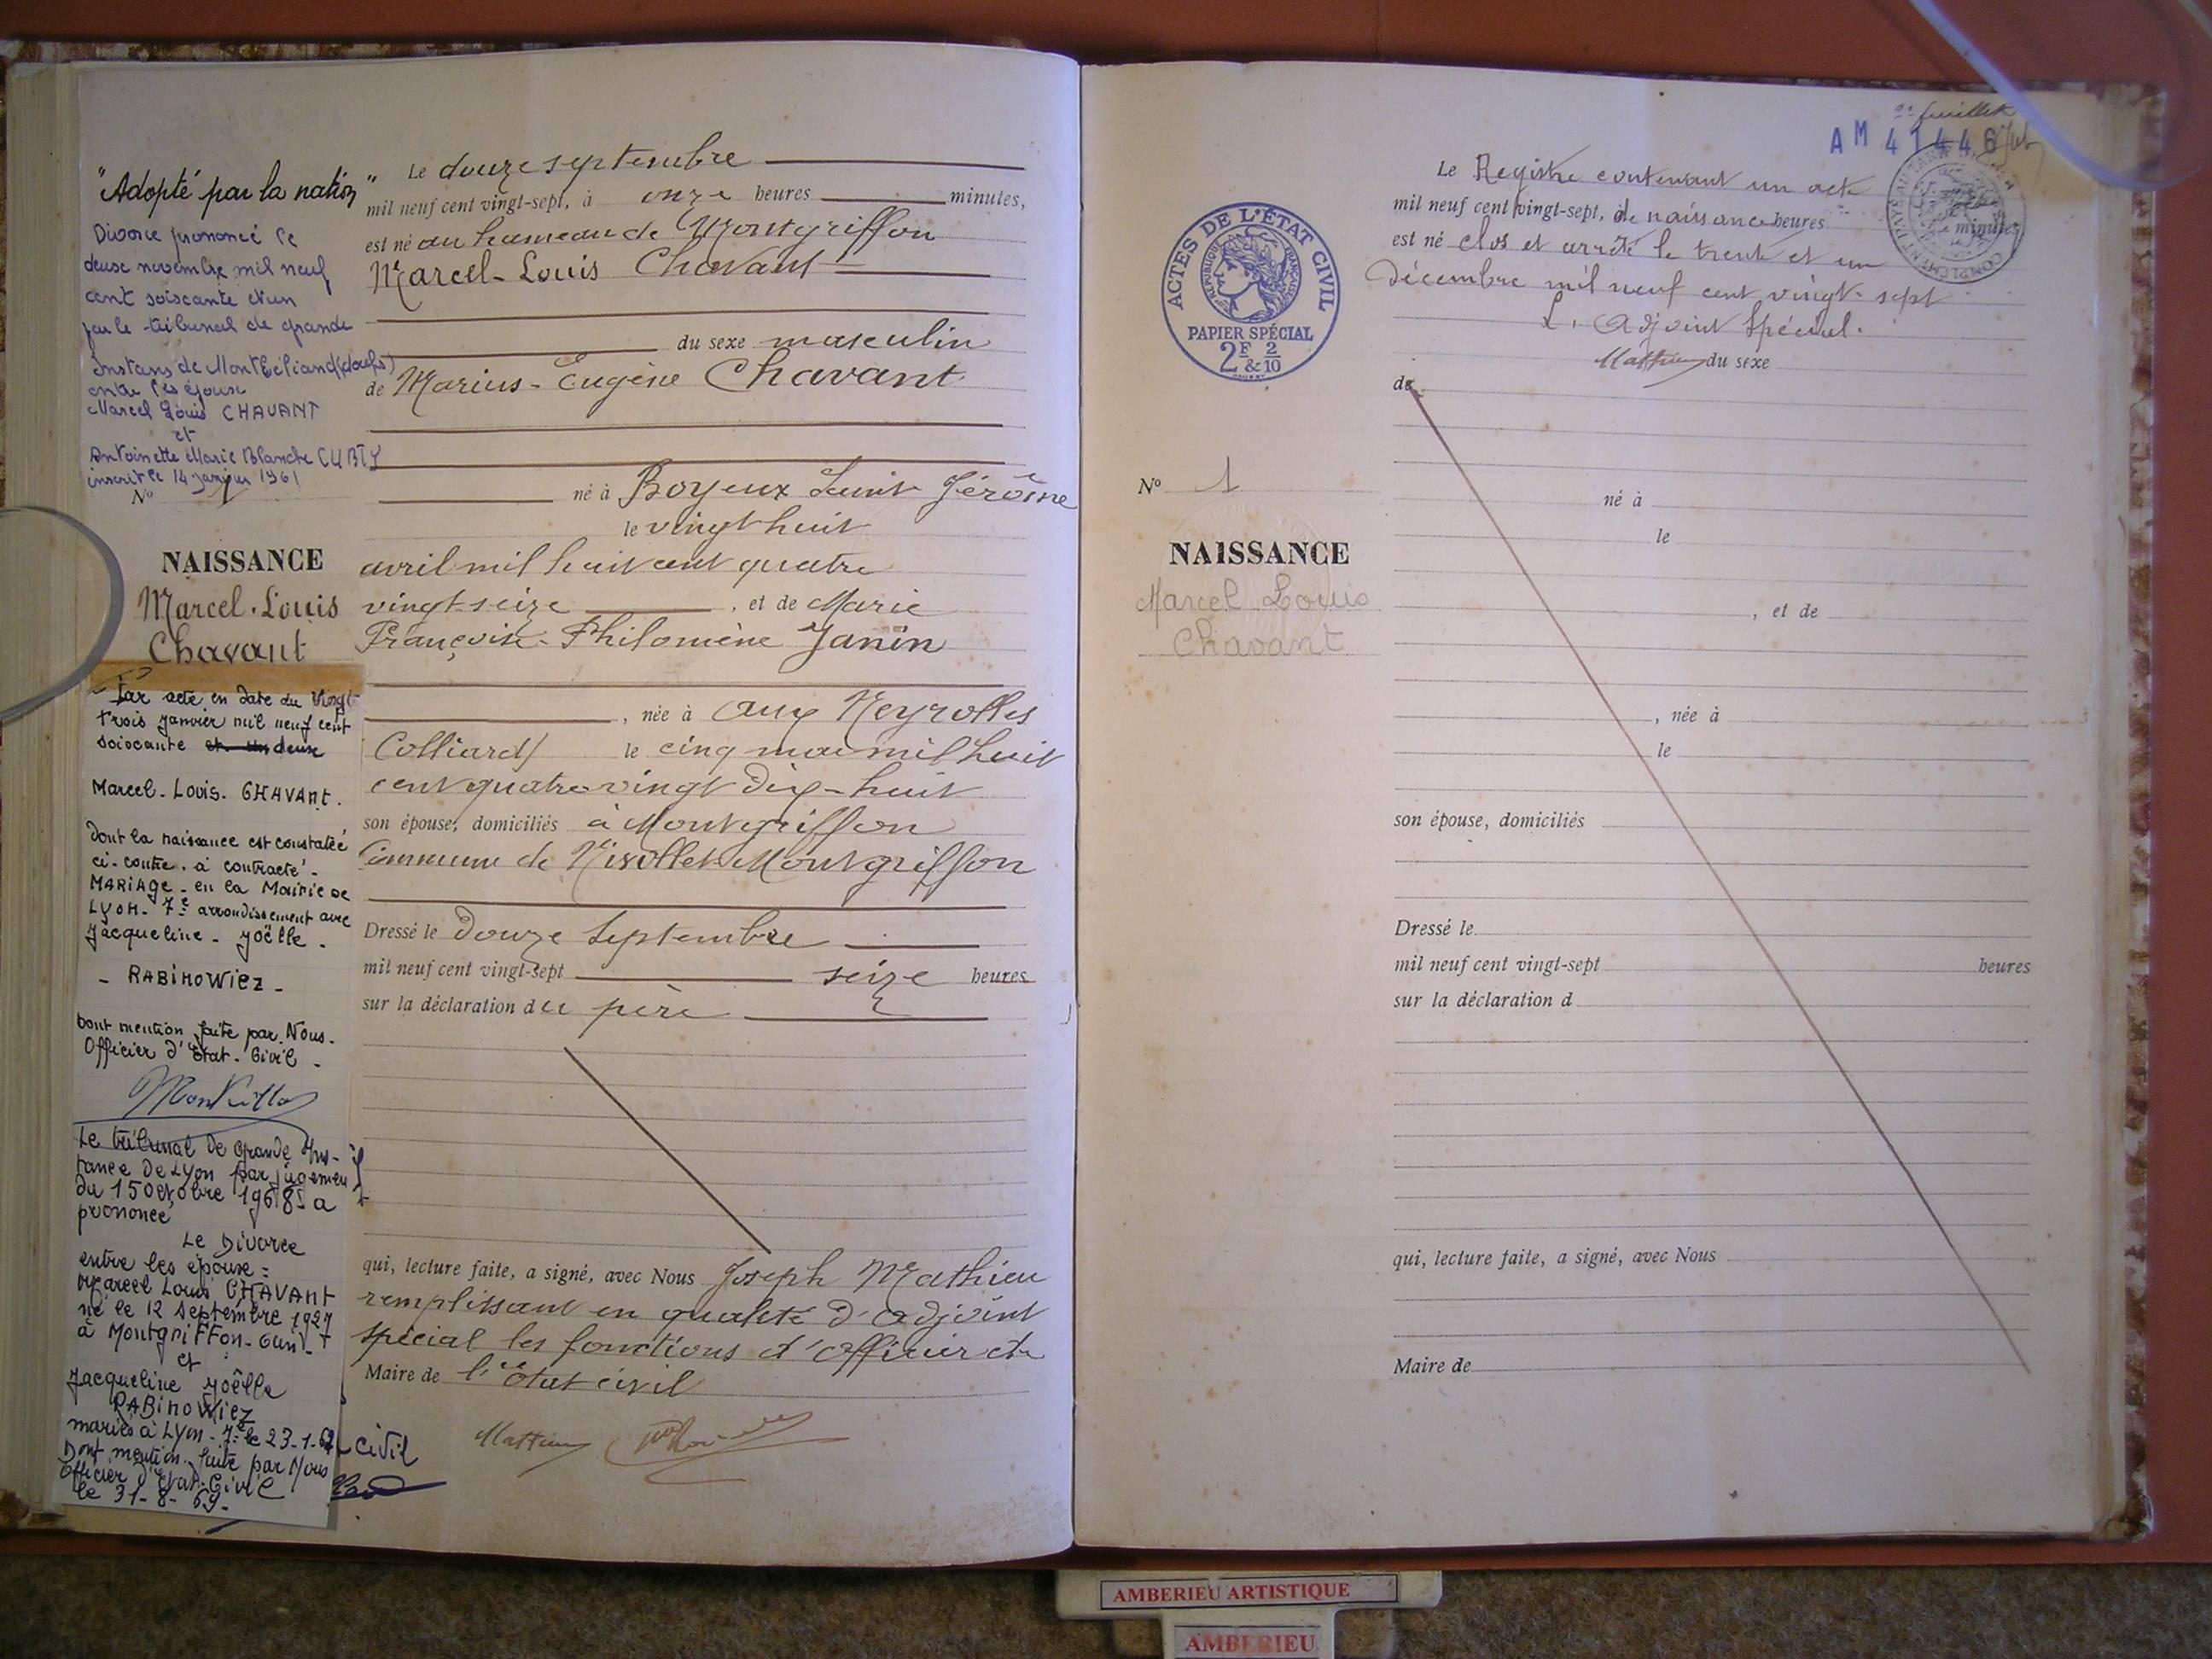 "Adopté par la nation"
Divorce prononcé le
deux novembre mil neuf
cent soiscante et un
par le tribunal de grande
Instans de Montbéliard (doubs)
entre les épouse
Marcel Louis CHAVANT
et
Antoinette Marie Blanche CUBTY
inscrit le 14 janvier 1961
N° 1
NAISSANCE
Marcel-Louis
Chavant
Par acte en date du Vingt
trois janvier mil neuf cent
soiscante et un deux
Marcel-Louis-CHAVANT.
dont la naissance est constatée
ci-contre. à contracté-
MARIAGE-en la Mairie de
LYON-7e arrondissement avec
Jacqueline-Joëlle-
-RABINOWIEZ-
Dont mention faite par Nous.
Officier d'Etat-Civil-
Le tribunal de Grande Ins-
tance de Lyon par jugement
du 15 octobre 1968 a
prononcé
Le Divorce
entre les épouse=
Marcel Louis CHAVANT
né le 12 Septembre 1927
à Montgriffon-
et
Jacqueline Joëlle
RABINOWIEZ
mariés à Lyon-7e le 23-1-62
Dont mention faite par Nous
Officier d'Etat-Civil
le 31-8-69-
civil
Le douze septembre
mil neuf cent vingt-sept, à onze heures minutes,
est né au hameau de Montgriffon
Marcel-Louis Chavant
du sexe masculin
de Marius-Eugène Chavant
né à Boyeux Saint Jérôme
le vingt huit
avril mil huit cent quatre
vingt-seize, et de Marie
Françoise-Philomène Janin
, née à aux Neyrolles
Colliard/ le cinq mai mil huit
cent quatre vingt dix-huit
son épouse, domiciliés à Montgriffon
Commune de Nivollet-Montgriffon
Dressé le Douze Septembre
mil neuf cent vingt-sept seize heures
sur la déclaration du père
qui, lecture faite, a signé, avec Nous Joseph Mathieu
remplissant en qualité d'adjoint
spécial les fonctions d'officier de
Maire de l'Etat civil
Mathieu
2e feuillet
AM 41446
Le Registre contenant un acte
mil neuf cent vingt-sept, de naissance heures minutes
est né clos et arrêté le trente et un
décembre mil neuf cent vingt-sept
L'adjoint Spécial.
Mathieu du sexe
de
ACTES DE L'ÉTAT CIVIL
RÉPUBLIQUE FRANÇAISE
PAPIER SPÉCIAL
2F & 2/10
N° 1
NAISSANCE
Marcel Louis
Chavant
né à
le
, et de
, née à
le
son épouse, domiciliés
Dressé le
mil neuf cent vingt-sept heures
sur la déclaration d
qui, lecture faite, a signé, avec Nous
Maire de
AMBERIEU ARTISTIQUE
AMBERIEU